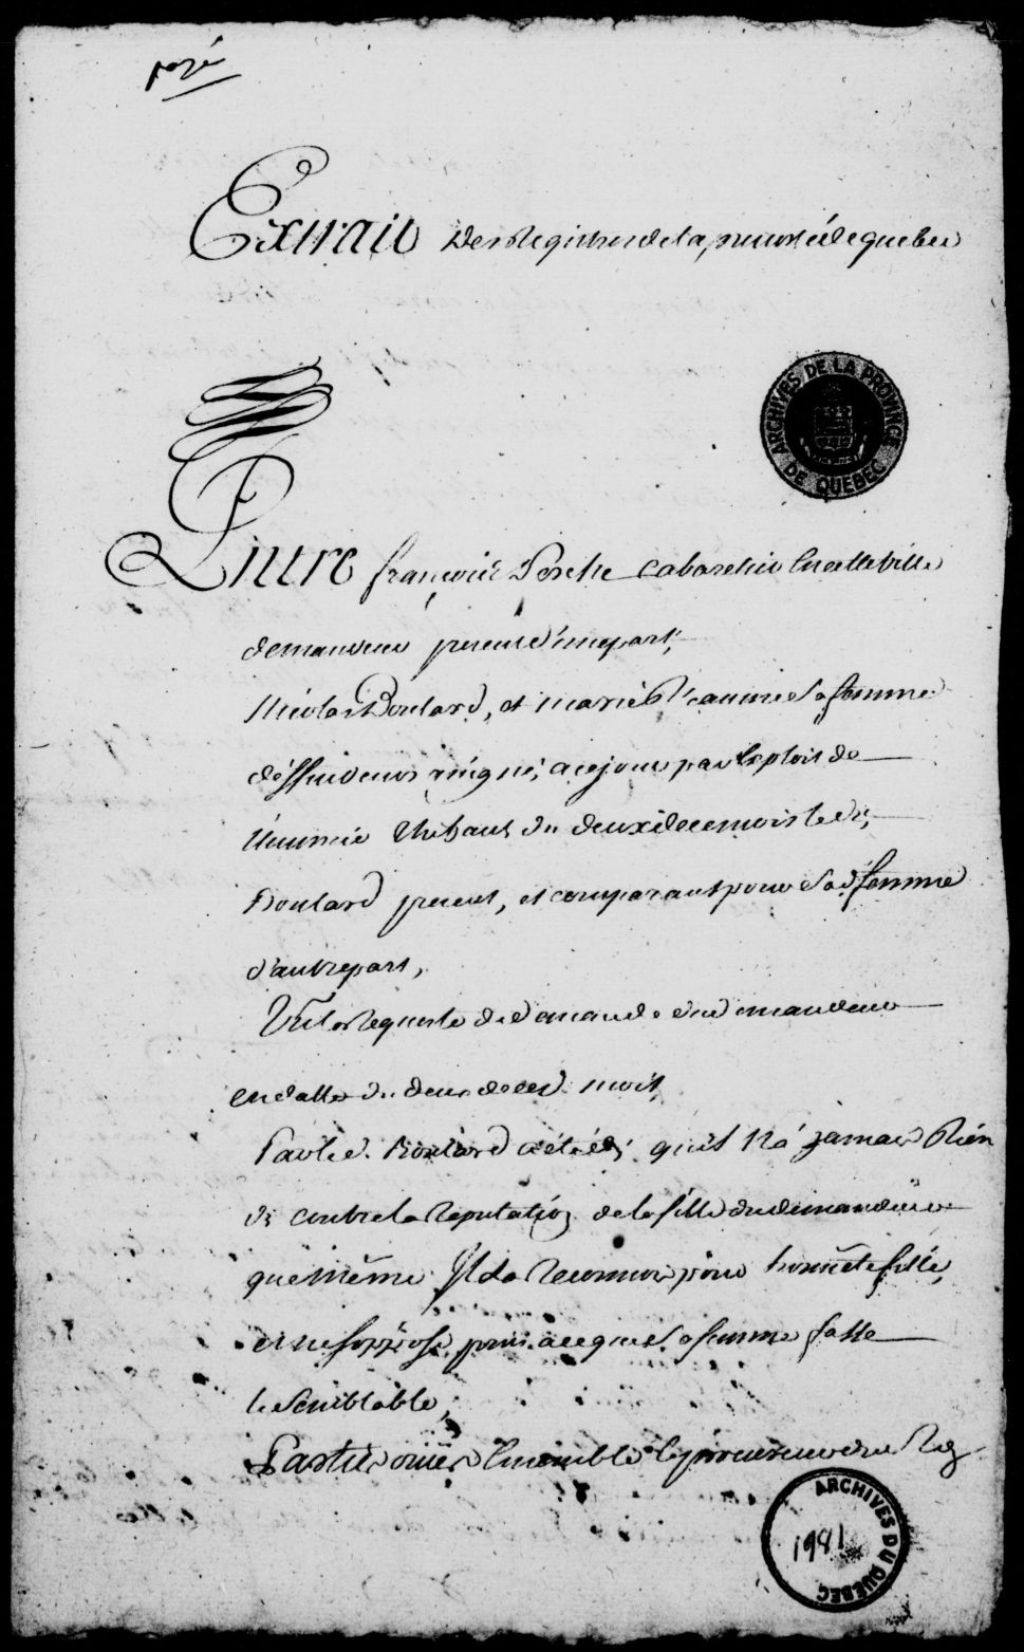 Extrait des Registres de la prevosté de quebec
ARCHIVES DE LA PROVINCE DE QUEBEC
Entre françois Perche cabaretier En cette ville
demandeur present d'une part,
Nicolas Boulard, et marie Jeanne sa femme
déffendeurs assignés a ce jour par Exploit de
L'huissier Thibault du deuxie de ce mois ledt
Boulard present, et comparant pour sad. femme
d'autre part,
Vu la Requeste de demande du demandeur
en datte du deux de ced. mois,
Par led. Boulard a été dit qu'il N'a jamais Rien
dit contre la Reputation de la fille du demandeur
que même Il la Reconnoit pour honnête fille,
et ne s'oppose point a ce que sa femme fasse
le semblable,
Parties ouïes Ensemble le procureur du Roy
ARCHIVES DU QUEBEC
1981